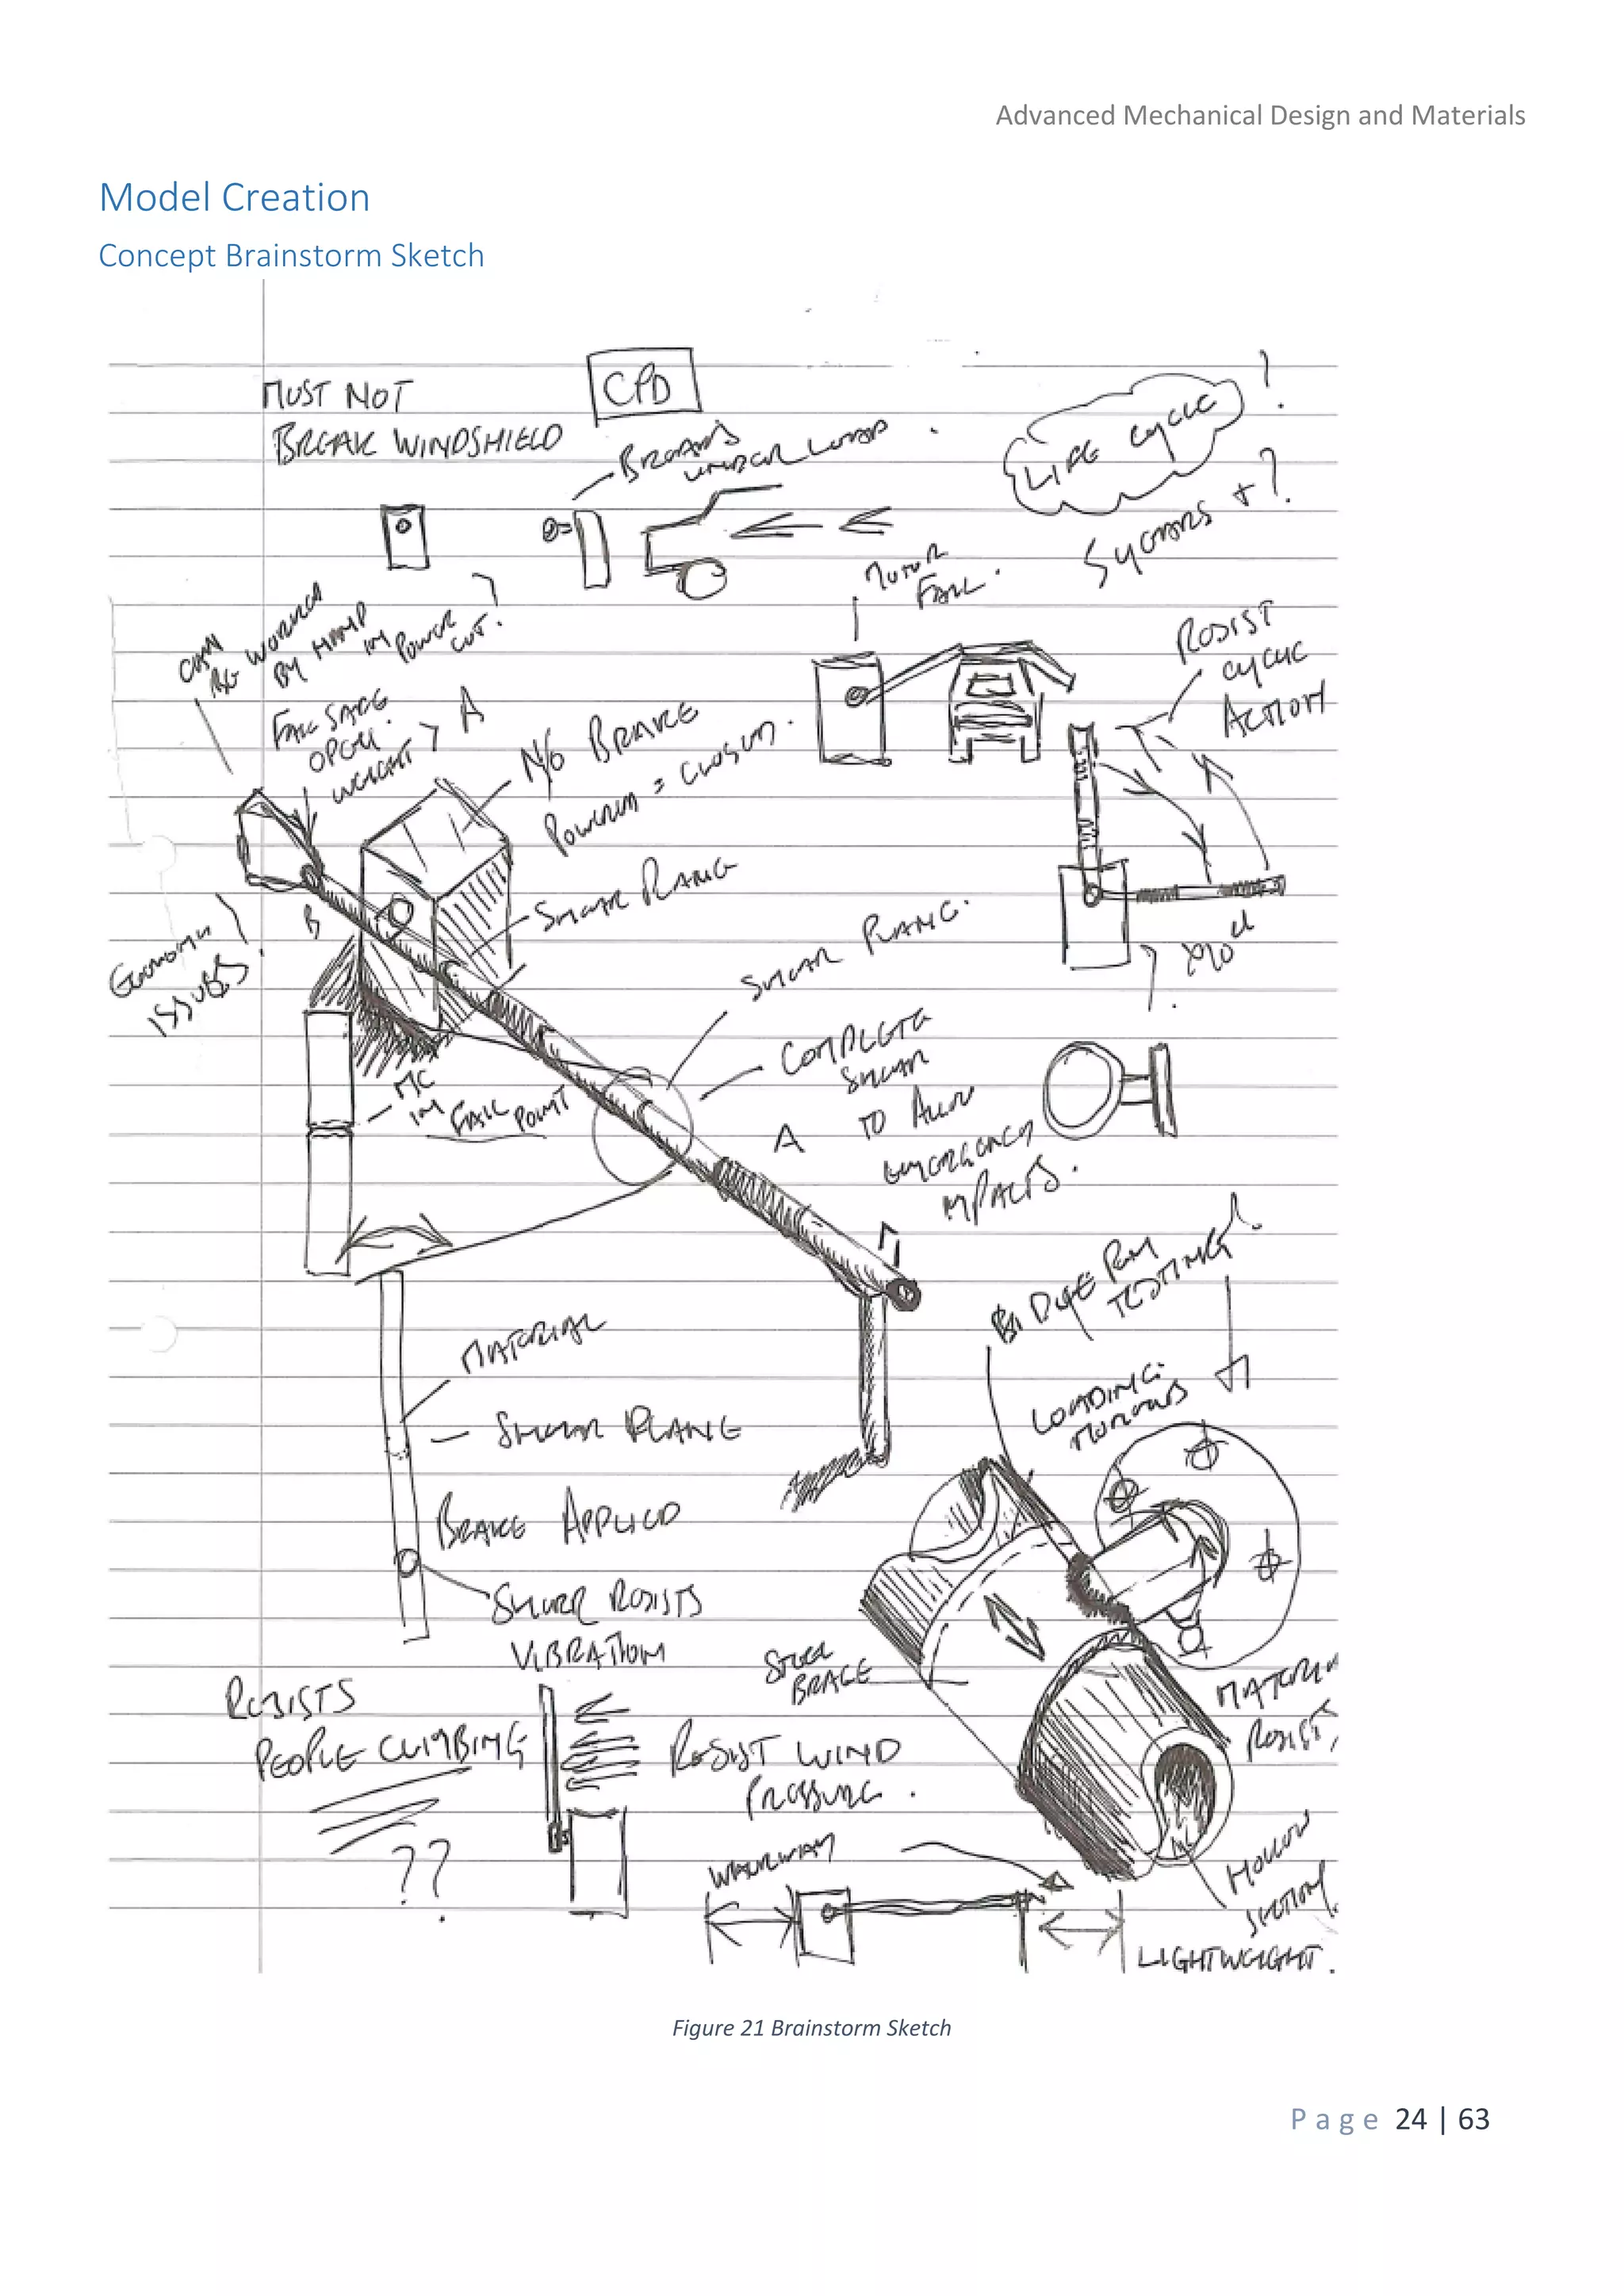 Advanced Mechanical Design and Materials
Model Creation
Concept Brainstorm Sketch
MUST NOT
BREAK WINDSHIELD
CPD
BREAKS
UNDER LOAD.
LIFE CYCLE
?
5 YEARS + ?
MOTOR
FAIL.
RESIST
CYCLIC
ACTION
CAN
BE WORKED
BY HAND
IN POWER
CUT?
FAIL SAFE
OPEN.
WEIGHT > A
N/O BRAKE
POWERED = CLOSED.
SHEAR PLANE
SHEAR PLANE.
B
ISSUES?
?
MC
IN
FAIL POINT
COMPLETE
SHEAR
TO ALLOW
EMERGENCY
IMPACTS.
A
DYE PEN
TESTING?
LOADING
MATERIAL
SHEAR PLANE
BRAKE APPLIED
SHEAR RESISTS
VIBRATION
STEEL
BRACE
RESISTS
PEOPLE CLIMBING
??
RESIST WIND
PRESSURE.
WALKWAY
MATERIAL
RESISTS
HOLLOW
SECTION.
LIGHTWEIGHT.
Figure 21 Brainstorm Sketch
Page 24 | 63